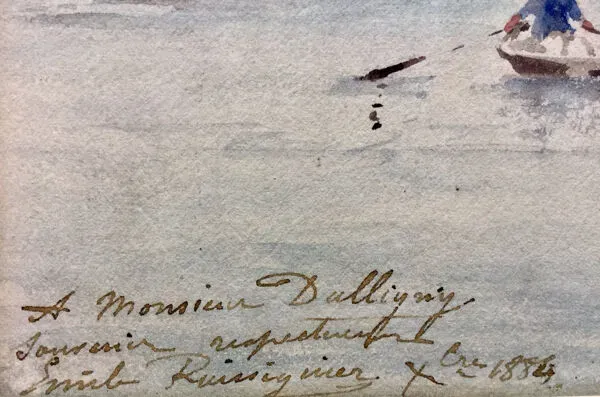 A Monsieur Dalligny.
Souvenir respectueux
Emile Rossignier Xbre 1884